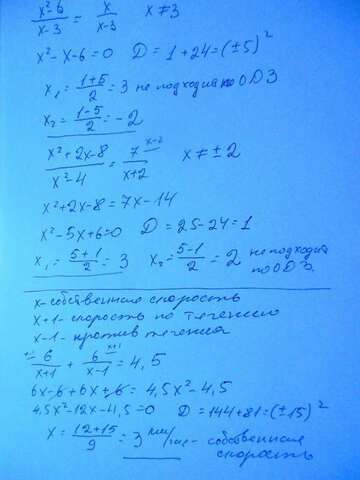 x²-6/x-3 = x/x-3   x≠3
x²-x-6=0   D=1+24=(±5)²
x₁=1+5/2=3 не подходит по ОДЗ
x₂=1-5/2=-2
x²+2x-8/x²-4 = 7 x-2/x+2   x≠±2
x²+2x-8=7x-14
x²-5x+6=0   D=25-24=1
x₁=5+1/2=3   x₂=5-1/2=2 не подходит по ОДЗ.
x-собственная скорость
x+1-скорость по течению
x-1-против течения
6/x+1 + 6 x+1/x-1 = 4,5
6x-6+6x+6=4,5x²-4,5
4,5x²-12x-4,5=0   D=144+81=(±15)²
x=12+15/9=3 км/час - собственная
скорость